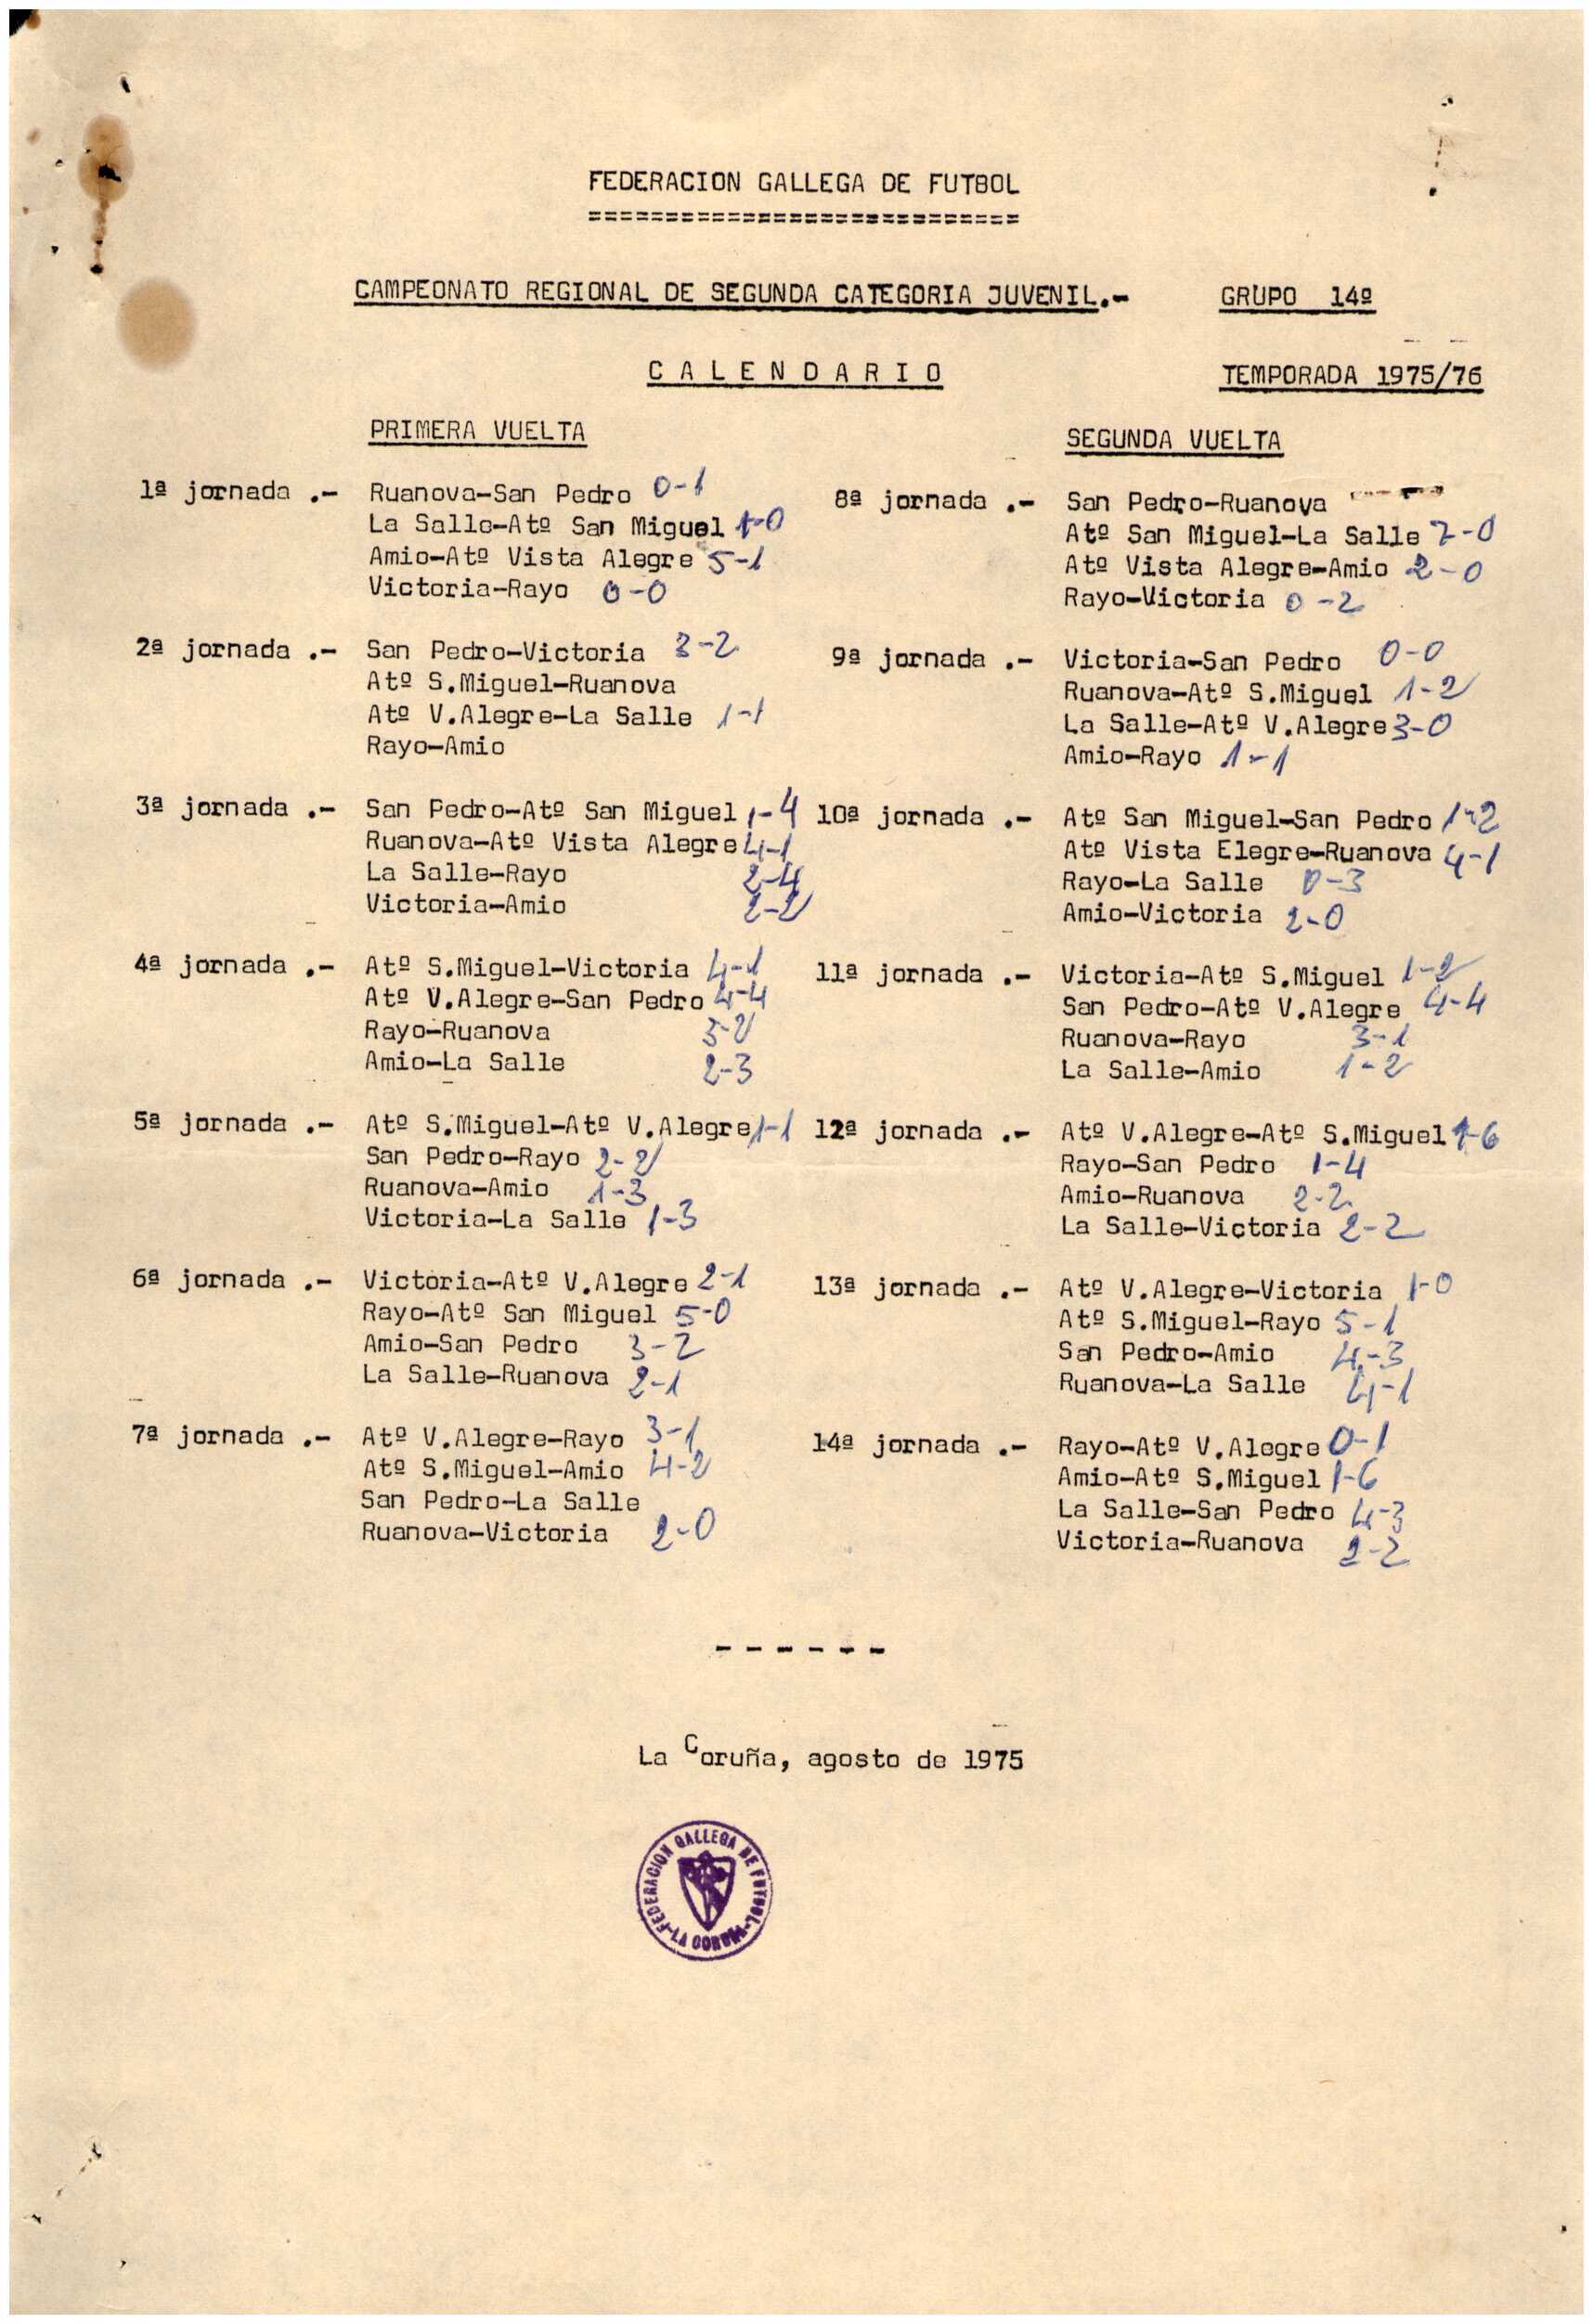 FEDERACION GALLEGA DE FUTBOL
============================
CAMPEONATO REGIONAL DE SEGUNDA CATEGORIA JUVENIL.- GRUPO 14º
CALENDARIO TEMPORADA 1975/76
PRIMERA VUELTA
1ª jornada .- Ruanova-San Pedro 0-1
La Salle-Atº San Miguel 1-0
Amio-Atº Vista Alegre 5-1
Victoria-Rayo 0-0
2ª jornada .- San Pedro-Victoria 3-2
Atº S.Miguel-Ruanova
Atº V.Alegre-La Salle 1-1
Rayo-Amio
3ª jornada .- San Pedro-Atº San Miguel 1-4
Ruanova-Atº Vista Alegre 4-1
La Salle-Rayo 2-4
Victoria-Amio 2-2
4ª jornada .- Atº S.Miguel-Victoria 4-1
Atº V.Alegre-San Pedro 4-4
Rayo-Ruanova 3-2
Amio-La Salle 2-3
5ª jornada .- Atº S.Miguel-Atº V.Alegre 1-1
San Pedro-Rayo 2-2
Ruanova-Amio 1-3
Victoria-La Salle 1-3
6ª jornada .- Victoria-Atº V.Alegre 2-1
Rayo-Atº San Miguel 5-0
Amio-San Pedro 3-2
La Salle-Ruanova 2-1
7ª jornada .- Atº V.Alegre-Rayo 3-1
Atº S.Miguel-Amio 4-2
San Pedro-La Salle
Ruanova-Victoria 2-0
SEGUNDA VUELTA
8ª jornada .- San Pedro-Ruanova
Atº San Miguel-La Salle 7-0
Atº Vista Alegre-Amio 2-0
Rayo-Victoria 0-2
9ª jornada .- Victoria-San Pedro 0-0
Ruanova-Atº S.Miguel 1-2
La Salle-Atº V.Alegre 3-0
Amio-Rayo 1-1
10ª jornada .- Atº San Miguel-San Pedro 1-2
Atº Vista Elegre-Ruanova 4-1
Rayo-La Salle 0-3
Amio-Victoria 2-0
11ª jornada .- Victoria-Atº S.Miguel 1-2
San Pedro-Atº V.Alegre 4-4
Ruanova-Rayo 3-1
La Salle-Amio 1-2
12ª jornada .- Atº V.Alegre-Atº S.Miguel 1-6
Rayo-San Pedro 1-4
Amio-Ruanova 2-2
La Salle-Victoria 2-2
13ª jornada .- Atº V.Alegre-Victoria 1-0
Atº S.Miguel-Rayo 5-1
San Pedro-Amio 4-3
Ruanova-La Salle 4-1
14ª jornada .- Rayo-Atº V.Alegre 0-1
Amio-Atº S.Miguel 1-6
La Salle-San Pedro 4-3
Victoria-Ruanova 2-2
------
La Coruña, agosto de 1975
FEDERACION GALLEGA DE FUTBOL
-LA CORUÑA-